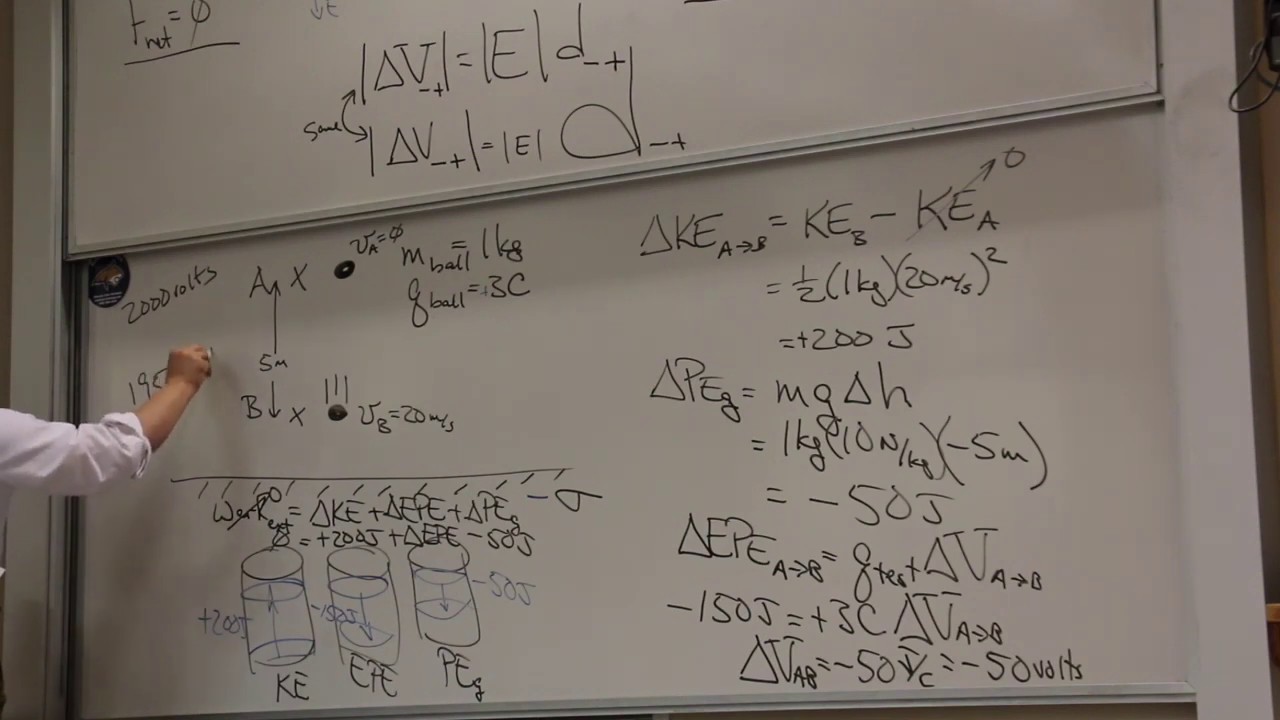 F_net = ϕ
↓E
|ΔV_-+| = |E| d_-+
same
|ΔV_-+| = |E| D_-+
2000 volts
A ↑ X
v_A = ϕ
m_ball = 1kg
q_ball = +3C
5m
195
B ↓ X
v_B = 20 m/s
-σ
Work_ext 0 = ΔKE + ΔEPE + ΔPE_g
ϕ = +200J + ΔEPE - 50J
+200J
-150J
-50J
KE
EPE
PE_g
ΔKE_A→B = KE_B - KE_A 0
= ½(1kg)(20m/s)²
= +200 J
ΔPE_g = mgΔh
= 1kg(10N/kg)(-5m)
= -50J
ΔEPE_A→B = q_test ΔV_A→B
-150J = +3C ΔV_A→B
ΔV_AB = -50 J/C = -50 volts